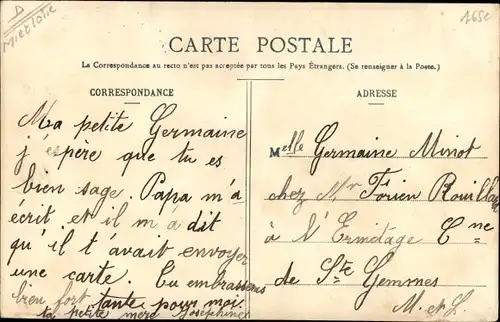 D
Mielotie
165e
CARTE POSTALE
La Correspondance au recto n'est pas acceptée par tous les Pays Étrangers. (Se renseigner à la Poste.)
CORRESPONDANCE
Ma petite Germaine
j'espère que tu es
bien sage. Papa m'a
écrit et il m'a dit
qu'il t'avait envoyer
une carte. Tu embrasseras
bien fort tante pour moi.
ta petite mère Joséphine
ADRESSE
Melle Germaine Minot
chez Mr Forien Rouillard
à l'Ermitage Cne
de Ste Gemmes
M. et L.